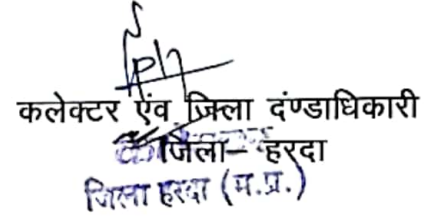 कलेक्टर एंव जिला दंण्डाधिकारी
जिला– हरदा
जिला हरदा (म.प्र.)